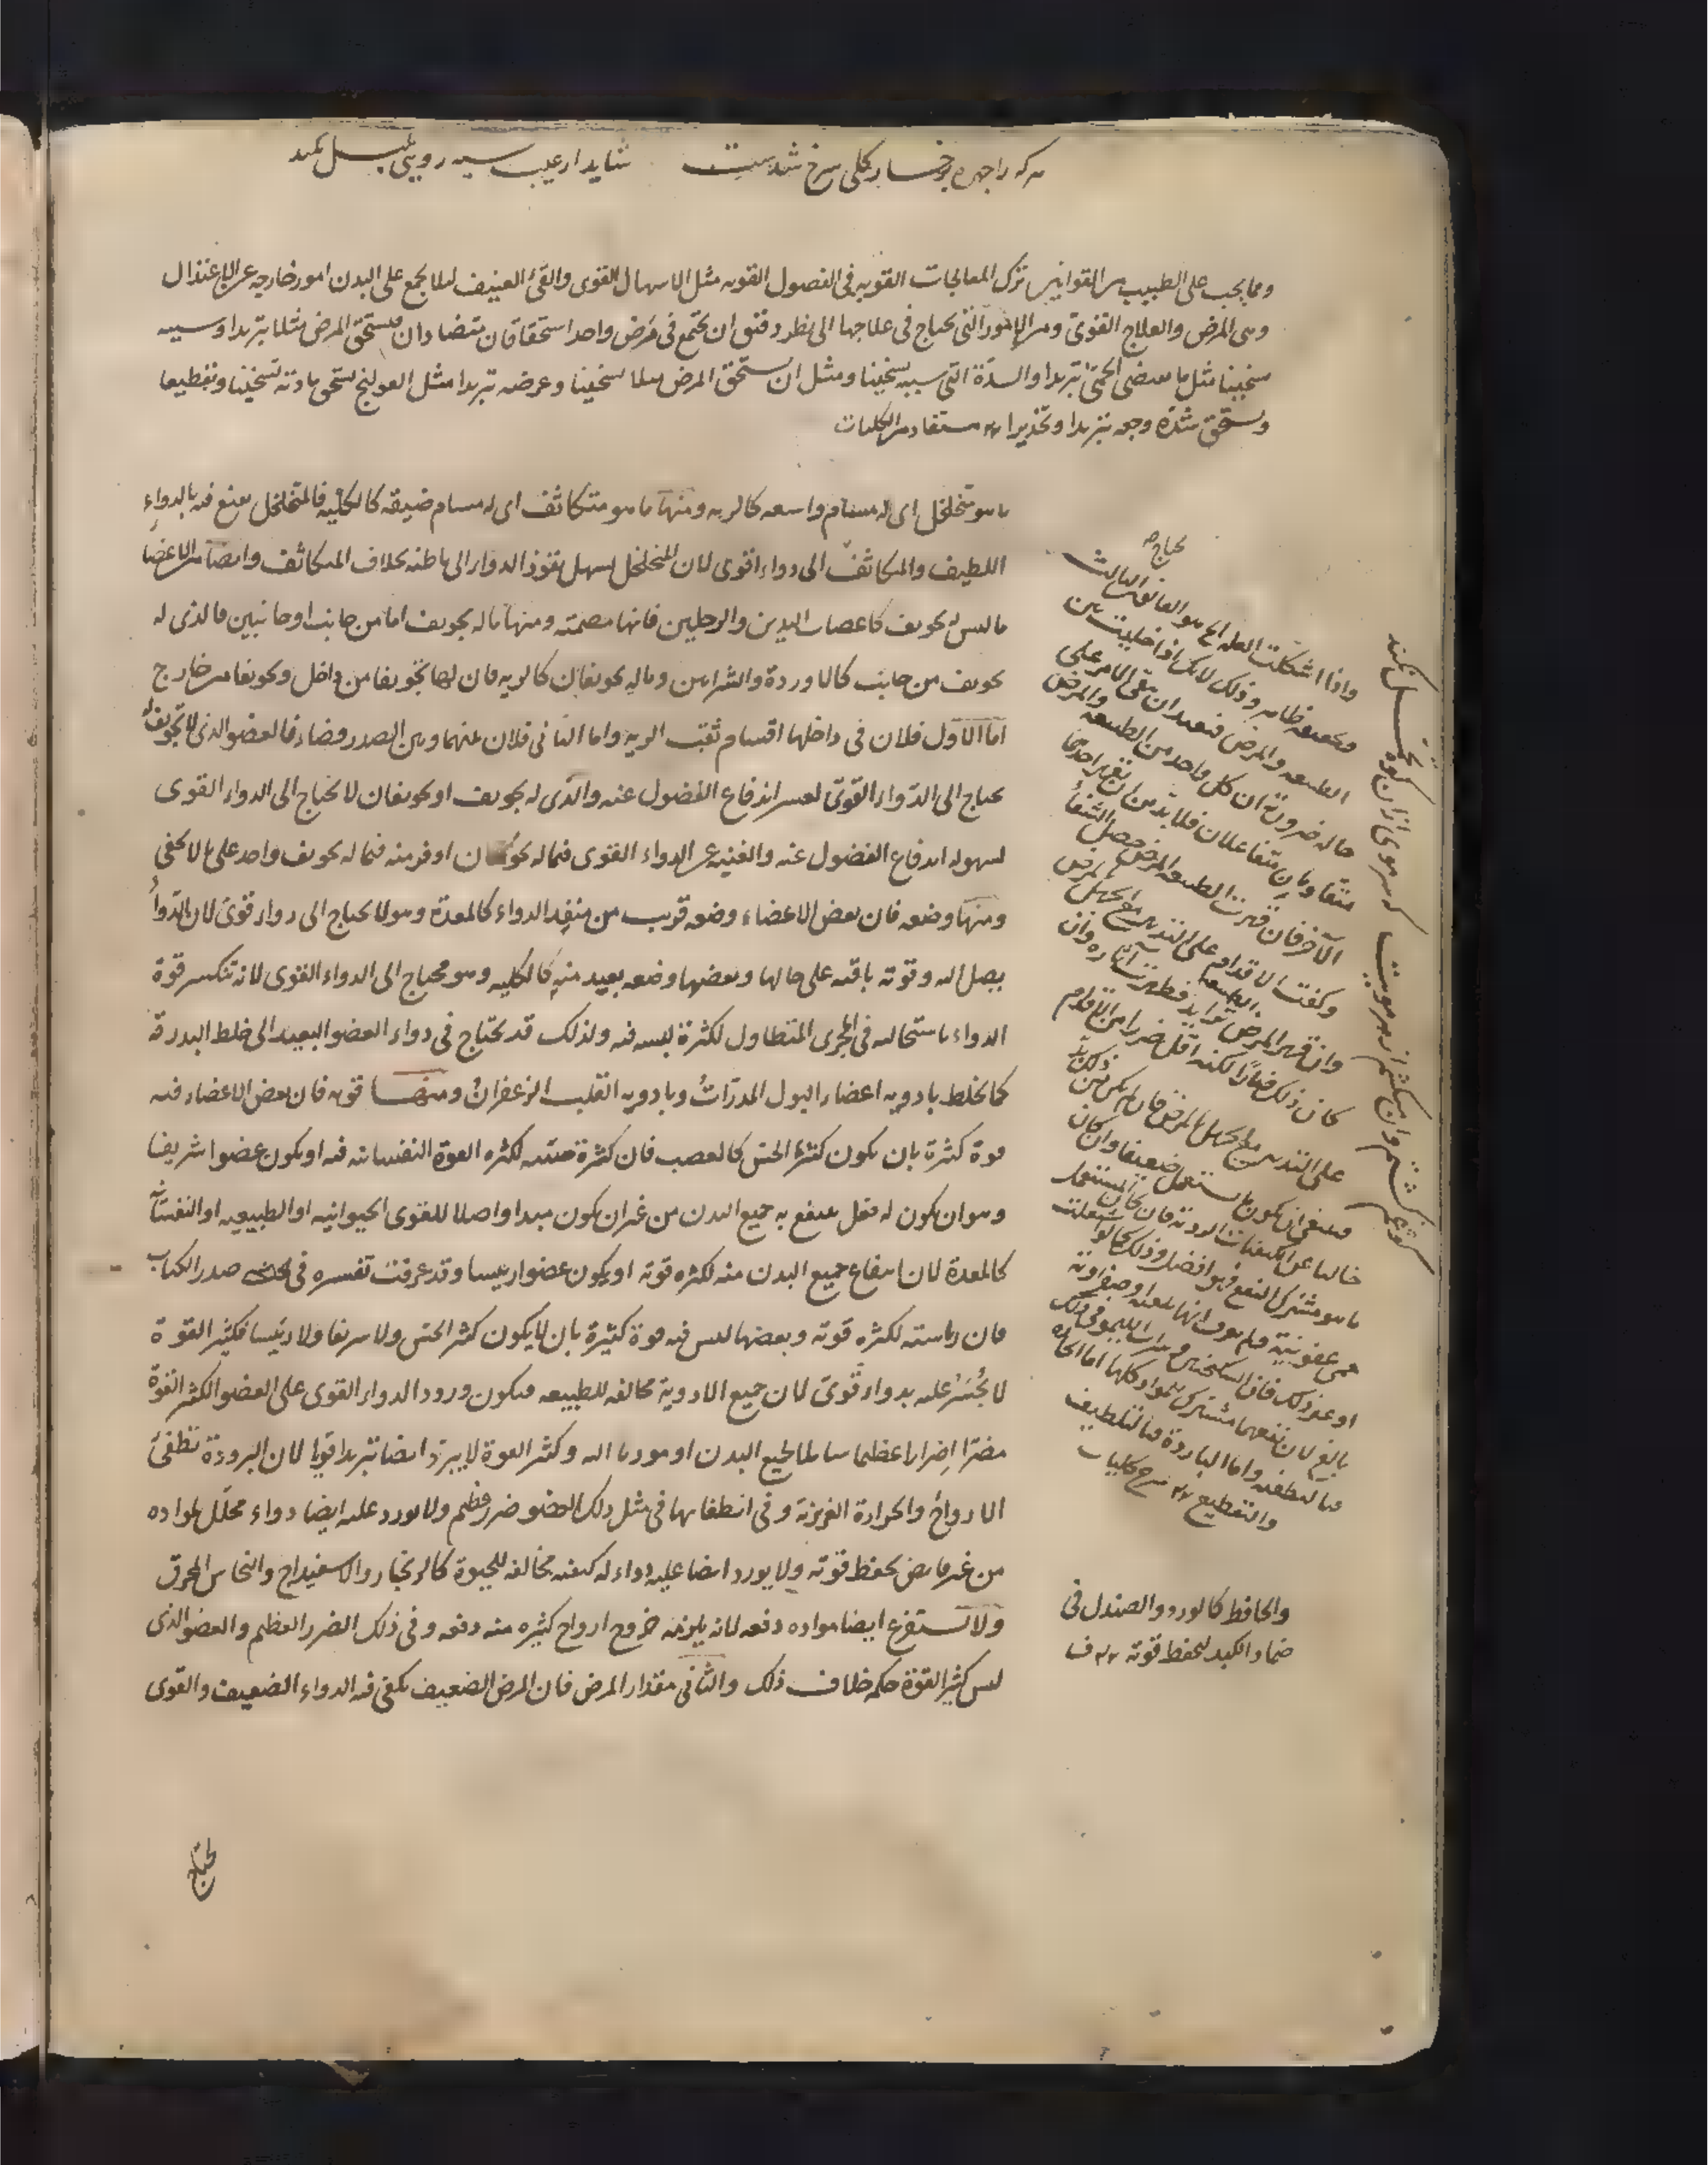 هر که را چهره چو رخسار گلی سرخ شدست شاید ار عیب سیه رویی
ومما يجب على الطبيب من القوانين ترك المعالجات القويه فى الفصول القويه مثل الاسهال القوى والقئ العنيف لئلا يجمع على البدن امور خارجه عن الاعتدال
وهى المرض والعلاج القوى ومن الامور التى يحتاج فى علاجها الى نظر دقيق ان يجتمع فى مرض واحد استحقاقان متضادان فيستحق المرض مثلا تبريدا وسببه
تسخينا مثل ما يقتضى الحمى تبريدا والسدة التى سببه تسخينا ومثل ان يستحق المرض مثلا تسخينا وعرضه تبريدا مثل القولنج يستحق مادته تسخينا وتقطيعا
ويستحق شدة وجعه تبريدا وتخديرا مستفاد من الكليات
ما هو متخلخل اى له مسام واسعه كالريه ومنها ما هو متكاثف اى له مسام ضيقه كالكليه فالمتخلخل ينتفع فيه بالدواء
اللطيف والمتكاثف الى دواء اقوى لان المتخلخل يسهل نفوذ الدواء الى باطنه بخلاف المتكاثف وايضا من الاعضا
ما ليس له تجويف كاعصاب اليدين والرجلين فانها مصمته ومنها ما له تجويف اما من جانب او جانبين فالذى له
تجويف من جانب كالاوردة والشرايين وما له تجويفان كالريه فان لها تجويفا من داخل وتجويفا من خارج
اما الاول فلان فى داخلها اقسام قصب الريه واما الثانى فلان بينهما وبين الصدر فضاء فالعضو الذى لا تجويف له
يحتاج الى الدواء القوى لعسر اندفاع الفضول عنه والذى له تجويف او تجويفان لا يحتاج الى الدواء القوى
لسهوله اندفاع الفضول عنه والغنيه عن الدواء القوى فيما له تجويفان اوفر منه فيما له تجويف واحد على ما لا يخفى
ومنها وضعه فان بعض الاعضاء وضعه قريب من منفذ الدواء كالمعدة وهو لا يحتاج الى دواء قوى لان الدواء
يصل اليه وقوته باقيه على حالها وبعضها وضعه بعيد منه كالكليه وهو محتاج الى الدواء القوى لانه تنكسر قوة
الدواء باستحالته فى المجرى المتطاول لكثرة لبسه فيه ولذلك قد يحتاج فى دواء العضو البعيد الى خلط البدرقة
كما يخلط بادويه اعضاء البول المدرات وبادويه القلب الزعفران ومنها قوته فان بعض الاعضاء فيه
قوة كثيرة بان يكون كثير الحس كالعصب فان كثرة حسه لكثره القوة النفسانيه فيه او يكون عضوا شريفا
وهو ان يكون له فعل ينتفع به جميع البدن من غير ان يكون مبدا واصلا للقوى الحيوانيه او الطبيعيه او النفسانيه
كالمعدة لان انتفاع جميع البدن منه لكثره قوته او يكون عضوا رئيسا وقد عرفت تفسيره فى صدر الكتاب
فان رياسته لكثره قوته وبعضها ليس فيه قوة كثيرة بان لا يكون كثير الحس ولا شريفا ولا رئيسا فكثير القوة
لا يجسر عليه بدواء قوى لان جميع الادوية مخالفه للطبيعه فيكون ورود الدواء القوى على العضو الكثير القوة
مضرا اضرارا عظيما شاملا لجميع البدن او مؤديا اليه وكثير القوة لا يبرد ايضا تبريدا قويا لان البرودة تطفئ
الارواح والحرارة الغريزية وفى انطفائها فى مثل ذلك العضو ضرر عظيم ولا يورد عليه ايضا دواء محلل لمواده
من غير قابض يحفظ قوته ولا يورد ايضا عليه دواء له كيفيه مخالفه للحيوة كالزنجار والاسفيداج والنحاس المحرق
ولا تستفرغ ايضا مواده دفعه لانه يلزمه خروج ارواح كثيره منه دفعه وفى ذلك الضرر العظيم والعضو الذى
ليس كثير القوة حكمه خلاف ذلك والثانى مقدار المرض فان المرض الضعيف يكفى فيه الدواء الضعيف والقوى
يحتاج
يحتاج
واذا اشكلت العلة
وتحقيقه ظاهر وذلك لانك اذا خليت بين
الطبيعه والمرض فبعد ان يبقى الامر على
حاله ضرورة ان كل واحد من الطبيعه والمرض
متقاومان متفاعلان فلا بد من ان يقهر احدهما
الآخر فان قهرت الطبيعه المرض حصل الشفا
وكفيت الاقدام على التدبير مع الجهل بالمرض
وان قهر المرض الطبيعه تزايد فظهرت آثاره وان
كان ذلك ضارا لكنه اقل ضررا من الاقدام
على التدبير مع الجهل بالمرض فان لم يكن من ذلك بد
فينبغى ان يكون ما يستعمل ضعيفا وان كان
خاليا عن الكيفيات الرديه
ما هو مشترك النفع فهو افضل وذلك
حمى عفونية ولم يعرف انها بلغمية او صفراوية
او غير ذلك فان السكنجبين
بالغ لان نفعهما مشترك للمواد كلها اما الحارة
فبالتطفيه واما الباردة فبالتلطيف
والتقطيع شرح كليات
والحافظ كالورد والصندل فى
ضماد الكبد لتحفظ قوته ف